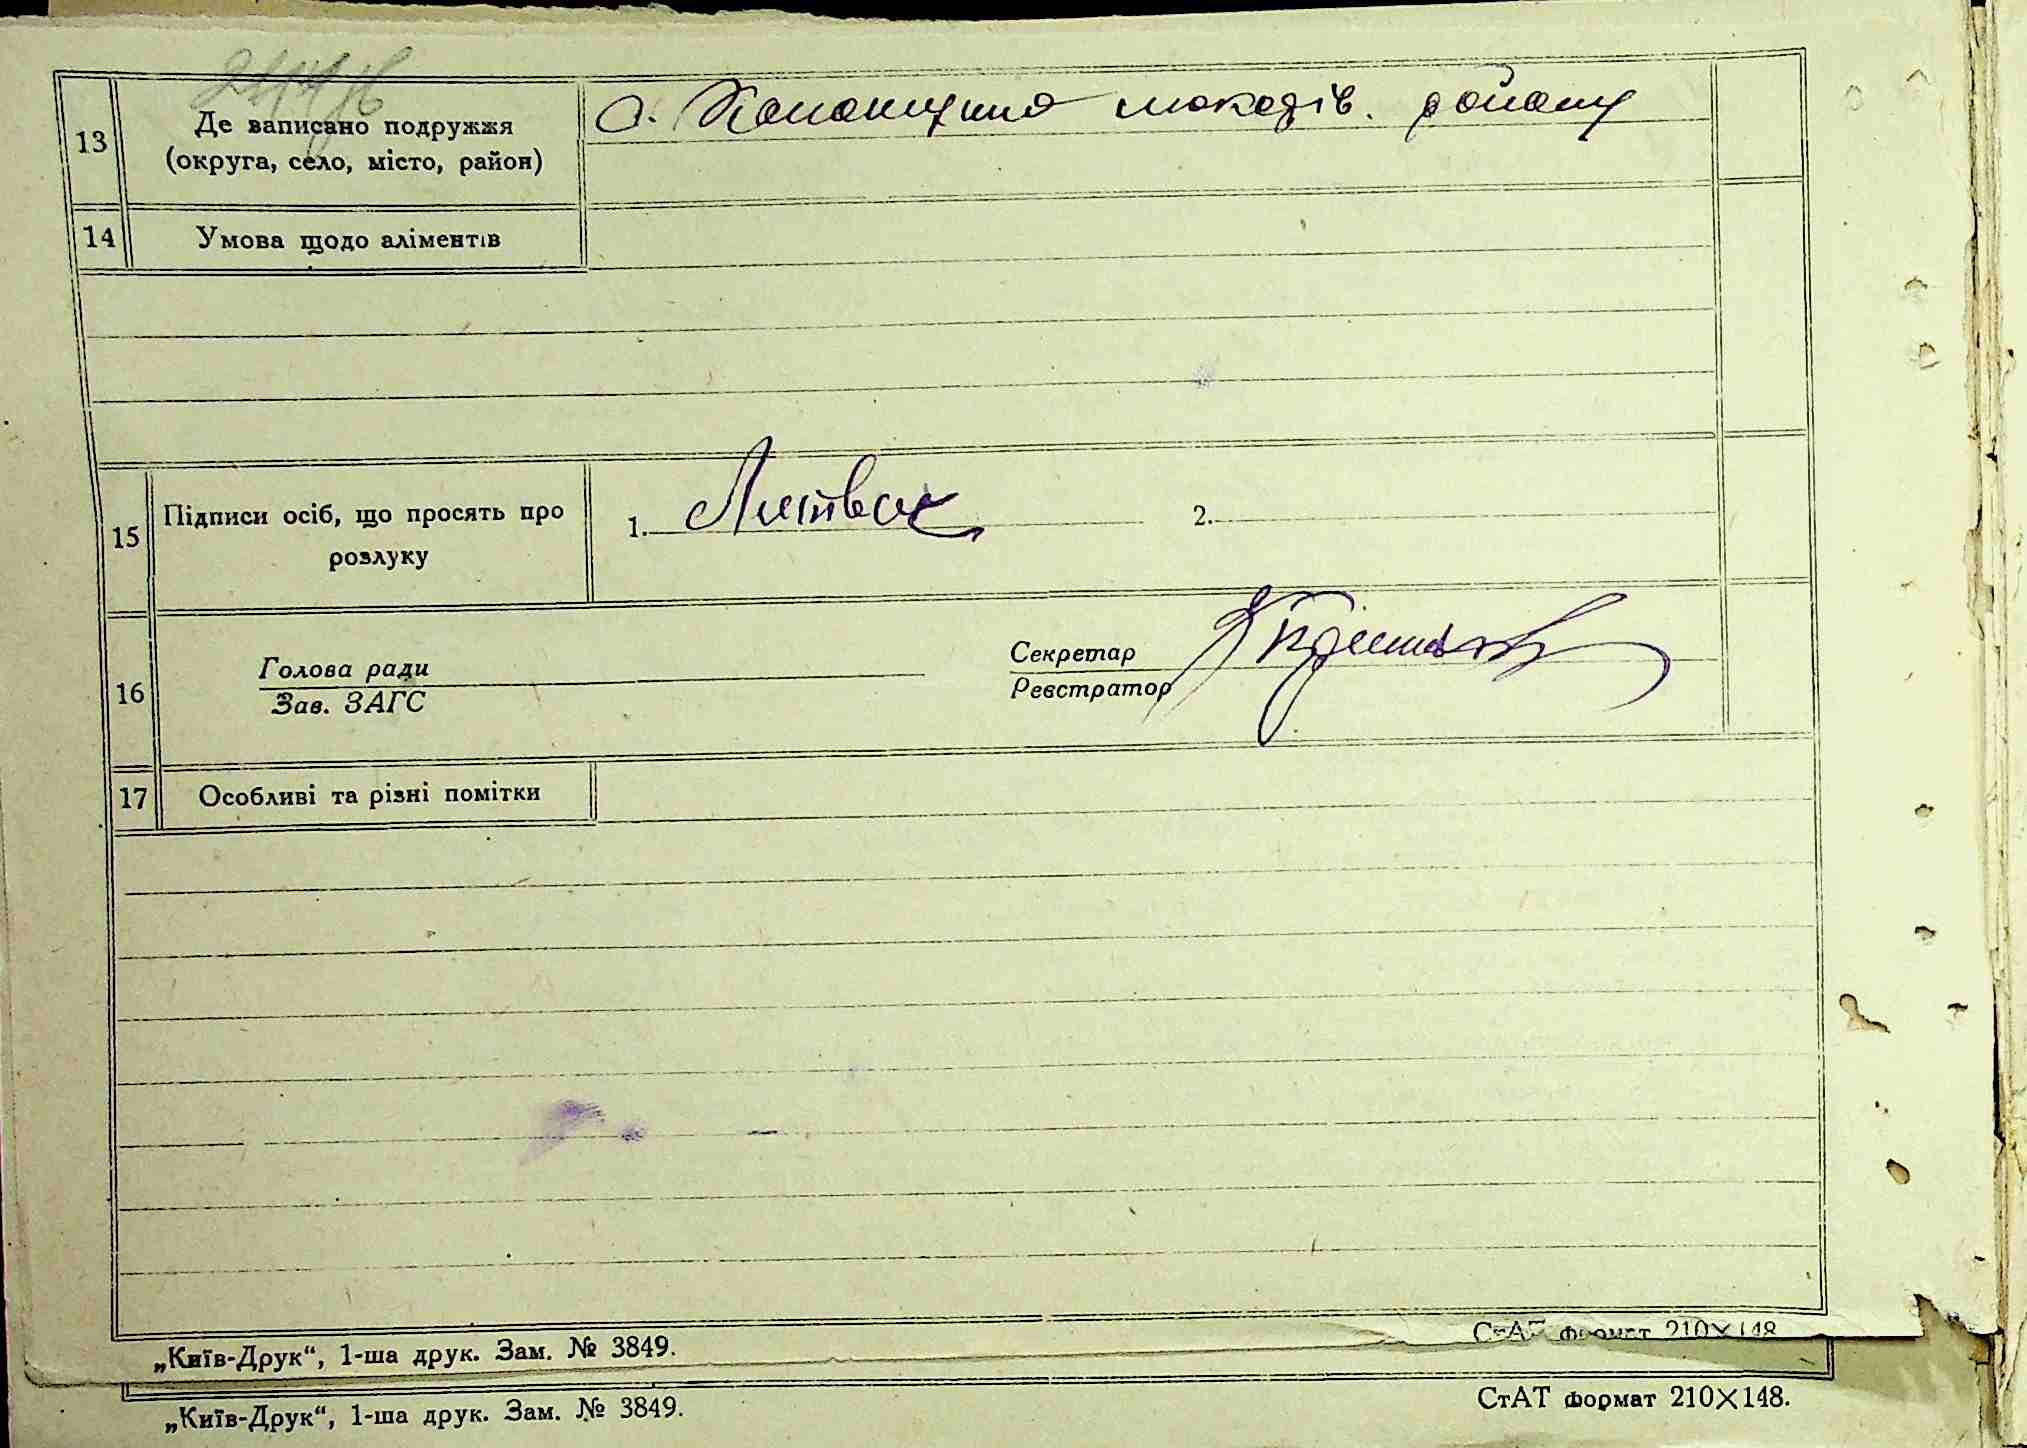 13
Де записано подружжя
(округа, село, місто, район)
с. макарів. району
14
Умова щодо аліментів
15
Підписи осіб, що просять про
розлуку
1. Литвак
2.
16
Голова ради
Зав. ЗАГС
Секретар
Реєстратор
17
Особливі та різні помітки
„Київ-Друк“, 1-ша друк. Зам. № 3849.
СтАТ формат 210×148
„Київ-Друк“, 1-ша друк. Зам. № 3849.
СтАТ формат 210×148.